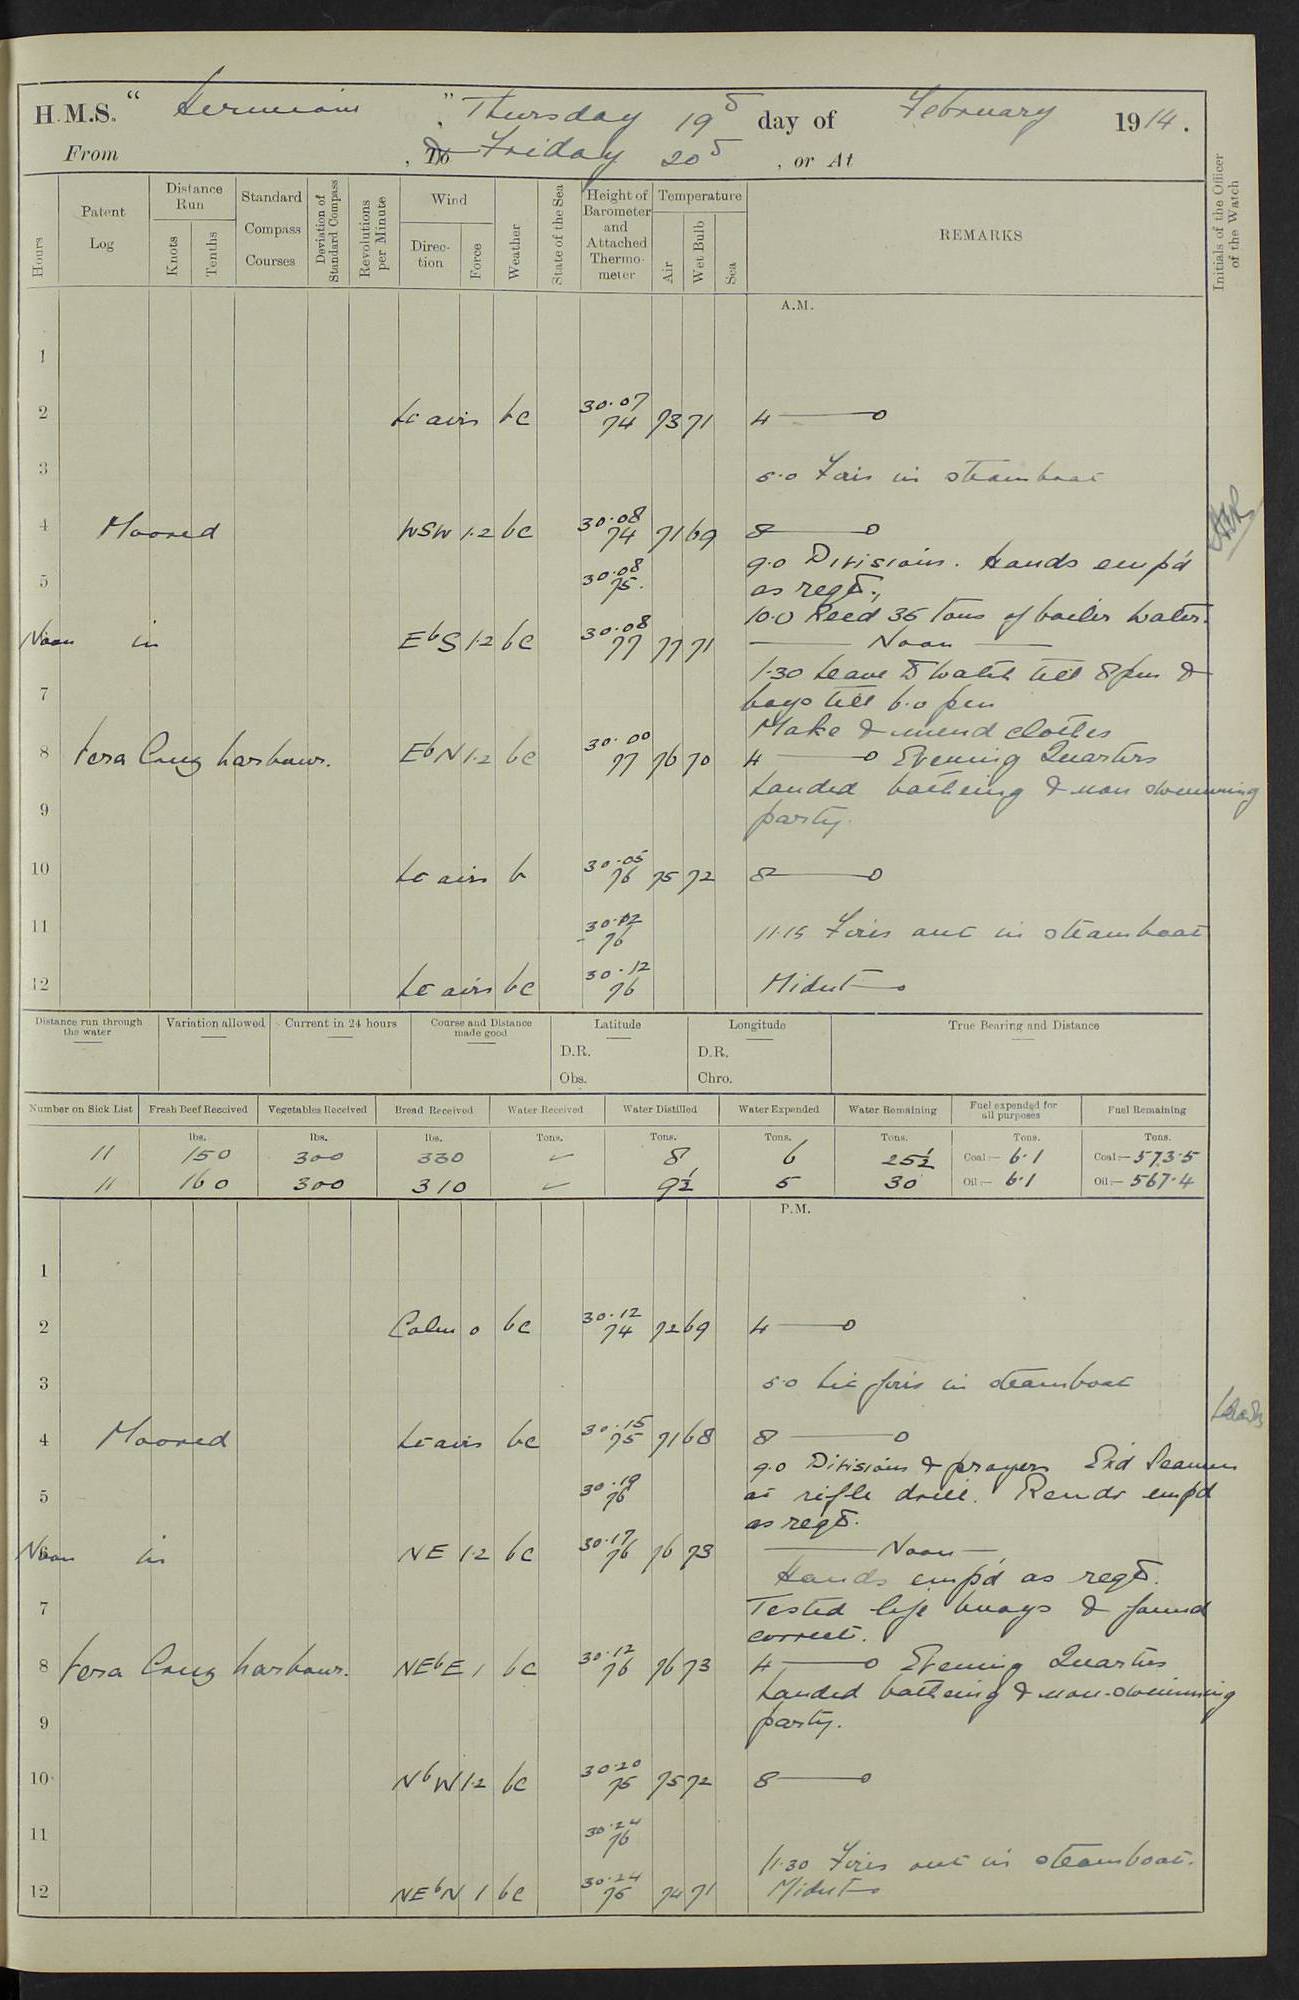 H.M.S. " Hermione ", Thursday 19th day of February 1914.
From , To & Friday 20th , or At
Hours
Patent Log
Distance Run
Knots
Tenths
Standard Compass Courses
Deviation of Standard Compass
Revolutions per Minute
Wind
Direction
Force
Weather
State of the Sea
Height of Barometer and Attached Thermometer
Temperature
Air
Wet Bulb
Sea
REMARKS
Initials of the Officer of the Watch
A.M.
1
2 Lt airs bc 30.07 74 73 71 4
3 5.0 Fires in steamboat
4 Moored WSW 1.2 bc 30.08 74 71 69 8
9.0 Divisions. Hands emp'd
5 30.08 75. as reqd.,
10.0 Recd 35 tons of boiler water.
Noon in EbS 1.2 bc 30.08 77 77 71 Noon
1.30 Leave to watch till 8 pm &
7 boys till 6.0 pm
Make & mend clothes
8 Vera Cruz harbour. EbN 1.2 bc 30.00 77 76 70 4 Evening Quarters
Landed bathing & non swimming
9 party.
10 Lt airs b 30.05 76 75 72 8
11 30.12 76 11.15 Fires out in steamboat
12 Lt airs bc 30.12 76 Midnt
Distance run through the water
Variation allowed
Current in 24 hours
Course and Distance made good
Latitude
D.R.
Obs.
Longitude
D.R.
Chro.
True Bearing and Distance
Number on Sick List
Fresh Beef Received
Vegetables Received
Bread Received
Water Received
Water Distilled
Water Expended
Water Remaining
Fuel expended for all purposes
Fuel Remaining
lbs. lbs. lbs. Tons. Tons. Tons. Tons. Tons. Tons.
11 150 300 330 ✓ 8 6 25½ Coal:— 6.1 Coal:— 573.5
11 160 300 310 ✓ 9½ 5 30 Oil:— 6.1 Oil:— 567.4
P.M.
1
2 Calm 0 bc 30.12 74 72 69 4
3 5.0 Lit fires in steamboat
4 Moored Lt airs bc 30.15 75 71 68 8
9.0 Divisions & prayers Ex'd Seamen
5 30.19 76 at rifle drill. Remdr emp'd
as reqd.
Noon in NE 1.2 bc 30.17 76 76 73 Noon
Hands emp'd as reqd.
7 Tested life buoys & found
correct.
8 Vera Cruz harbour. NEbE 1 bc 30.12 76 76 73 4 Evening Quarters
Landed bathing & non-swimming
9 party.
10 NbW 1.2 bc 30.20 75 75 72 8
11 30.24 76
11.30 Fires out in steamboat.
12 NEbN 1 bc 30.24 75 74 71 Midnt